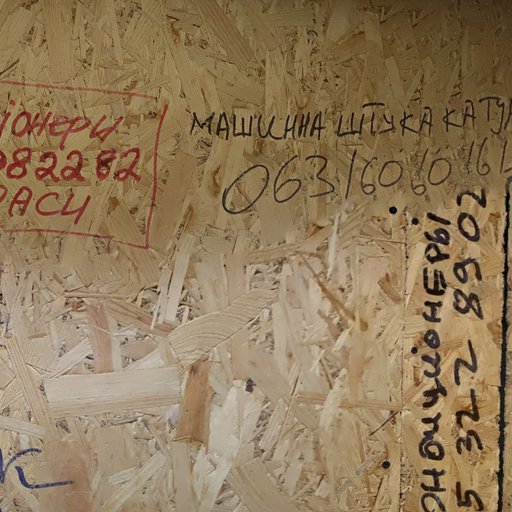 іонери
982282
РАСИ
МАШИННА ШТУКАКАТУР
063160 60 161
ОНДИЦИОНЕРЫ
5 322 8902